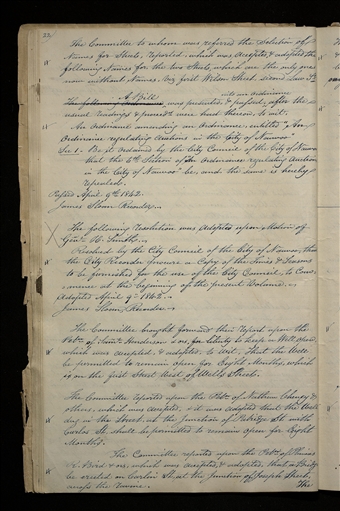 22
The Committee to whom was referred the selection of
Names for Streets, reported, which was accepted, & adopted the
following Names for the two Streets, which are the only ones
now without Names. Viz first Wilson Street, second Law St
A Bill
into an ordinance
The following Ordinance was presented, & passed, after the
usual readings & proceed were had thereon, to wit.
An Ordinance amending an Ordinance, entitled "An
Ordinance regulating Auctions in the City of Nauvoo."
Sec 1. Be it ordained by the City Council of the City of Nauvoo,
that the 4th Section of An Ordinance regulating Auctions
in the City of Nauvoo be, and the same is hereby
repealed.
Passed April 9th 1842.
James Sloan Recorder.
The following resolution was adopted upon Motion of
H. Smith.
Resolved by the City Council of the City of Nauvoo, that
the City Recorder procure a Copy of the Times & Seasons
to be furnished for the use of the City Council, to Com-
mence at the beginning of the present Volume.
Adopted April 9 1842.
James Sloan, Recorder.
The Committee brought forward their report upon the
Petn. of Anderson & ors, for liberty to keep a Well open,
which was accepted, & adopted, to wit, that the Well
be permitted to remain open for Eight Months, which
is on the first Street West of Wells Street.
The Committee reported upon the Petn. of Nathan Cheney &
others, which was accepted, & it was adopted that the Well
dug in the Street, at the junction of Street with
Carlos St. shall be permitted to remain open for Eight
Months.
The Committee reported upon the Petn. of
Bird & ors, which was accepted, & adopted, that a Bridge
be erected on Carlin St. at the junction of Joseph Street,
across the Ravine.
The